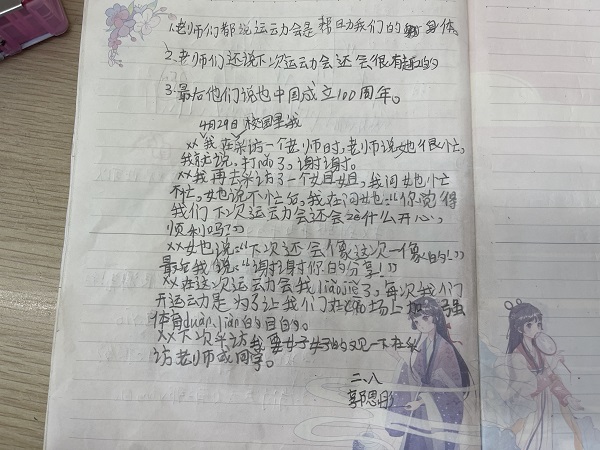 1.老师们都说运动会是帮助我们的身体
2.老师们还说下次运动会还会很有趣的
3.最后他们说也中国成立100周年。
4月29日 校园里我
xx我在采访一个老师时,老师说她很忙,
我就说,打rǎo了,谢谢。
xx我再去采访了一个姐姐,我问她忙
不忙,她说不忙后,我在问她:“你觉得
我们下次运动会还会这什么开心,
顺利吗?”
xx她说:“下次还会像这次一像的!”
最后我说:“谢谢你的分享!”
xx在这次运动会我liǎo jiě了,每次我们
开运动是为了让我们在cāo场上 强
体育duàn liàn的目的。
xx下次采访我要好好的观一下在采
访老师或同学。
二、八
郭恩彤